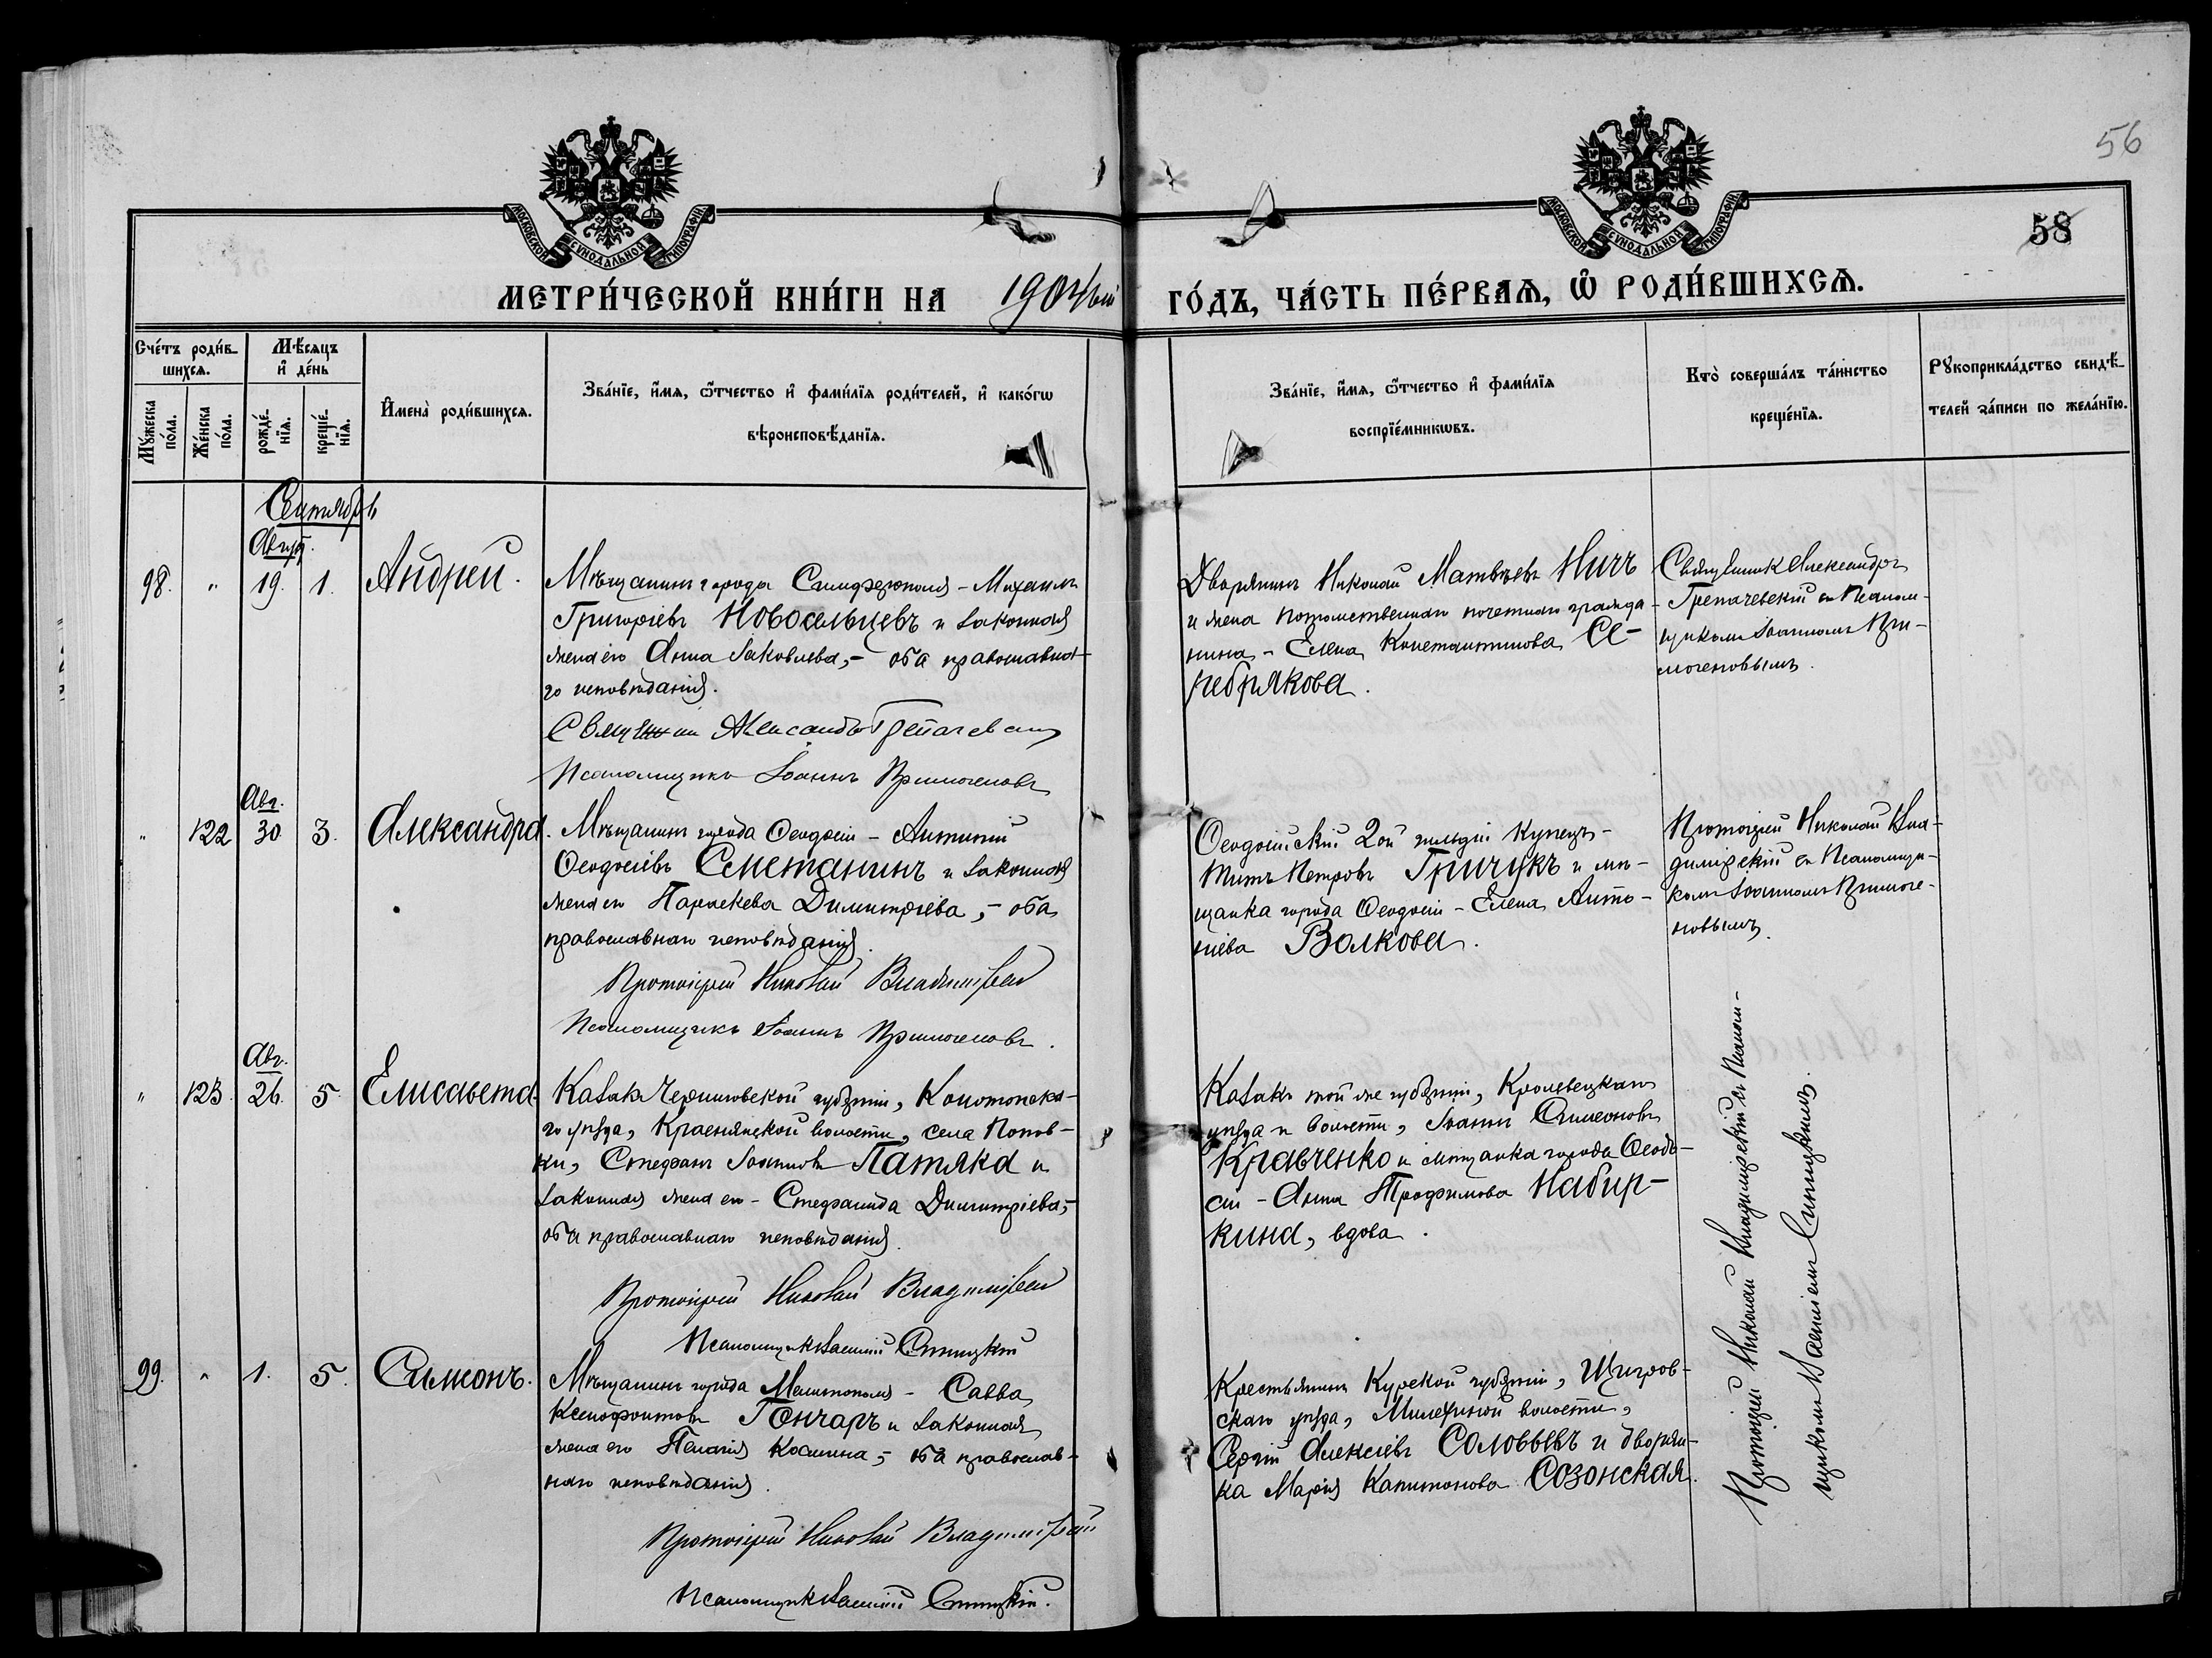 56
58
МОСКОВСКОЙ СѴНОДАЛЬНОЙ ТИПОГРАФІИ.
МОСКОВСКОЙ СѴНОДАЛЬНОЙ ТИПОГРАФІИ.
МЕТРИ́ЧЕСКОЙ КНИ́ГИ НА 1904ый ГО́ДЪ, ЧА́СТЬ ПЕ́РВАѦ, Ѽ РОДИ́ВШИХСѦ.
Сче́тъ роди́в-
шихсѧ.
Мѣ́сѧцъ
и҆ де́нь
Мꙋ́жеска
по́ла.
Же́нска
по́ла.
рожде́-
нїѧ.
креще́-
нїѧ.
И҆мена̀ роди́вшихсѧ.
Зва́нїе, и҆́мѧ, ѻ҆́тчество и҆ фами́лїѧ роди́телей, и҆ како́гѡ
вѣроисповѣ́данїѧ.
Зва́нїе, и҆́мѧ, ѻ҆́тчество и҆ фами́лїѧ
воспрїе́мникѡвъ.
Кто̀ соверша́лъ та́инство
креще́нїѧ.
Рꙋкоприкла́дство свидѣ́-
телей за́писи по жела́нїю.
Сентябрь
Авгус.
98. " 19. 1. Андрей.
Мѣщанинъ города Симферополя - Михаилъ
Григоріевъ Новосельцевъ и законная
жена его Анна Іаковлева, - оба православна-
го исповѣданія.
Священник Александръ Грепачевскій
Псаломщикъ Іоаннъ
Дворянинъ Николай Матвѣевъ Ничъ
и жена потомственнаго почетнаго гражда-
нина - Елена Константинова Се-
ребрякова.
Священникъ Александръ
Грепачевскій съ Псалом-
щикомъ Іоанномъ При-
могеновымъ.
Авг.
" 122 30 3. Александра.
Мѣщанинъ города Ѳеодосіи - Антипій
Ѳеодосіевъ Сметанинъ и законная
жена его Параскева Димитріева, - оба
православнаго исповѣданія.
Протоіерей Николай Владимірскій
Псаломщикъ Іоаннъ Примогеновъ.
Ѳеодосійскій 2ой гильдіи купецъ -
Титъ Петровъ Гричукъ и мѣ-
щанка города Ѳеодосіи - Елена Анто-
ніева Волкова.
Протоіерей Николай Вла-
димірскій съ Псаломщи-
комъ Іоанномъ Примоге-
новымъ.
Авг.
" 123 26. 5. Елисавета.
Казакъ Черниговской губерніи, Конотопска-
го уѣзда, Краснянской волости, села Попов-
ки, Стефанъ Іоанновъ Патяка и
законная жена его - Стефанида Димитріева, -
оба православнаго исповѣданія.
Протоіерей Николай Владимірскій
Псаломщикъ Василій Синицкій
Казакъ той же губерніи, Кролевецкаго
уѣзда и волости, Іоаннъ Симеоновъ
Кравченко и мѣщанка города Ѳеодо-
сіи - Анна Трофимова Набир-
кина, вдова.
Протоіерей Николай Владимірскій съ Псалом-
щикомъ Василіемъ Синицкимъ.
99. " 1. 5. Симеонъ.
Мѣщанинъ города Мелитополя - Савва
Ксенофонтовъ Гончаръ и законная
жена его Пелагія Космина, - оба православ-
наго исповѣданія.
Протоіерей Николай Владимірскій
Псаломщикъ Василій Синицкій.
Крестьянинъ Курской губерніи, Щигров-
скаго уѣзда, волости,
Сергій Алексіевъ Соловьевъ и дворян-
ка Марія Капитонова Созонская.